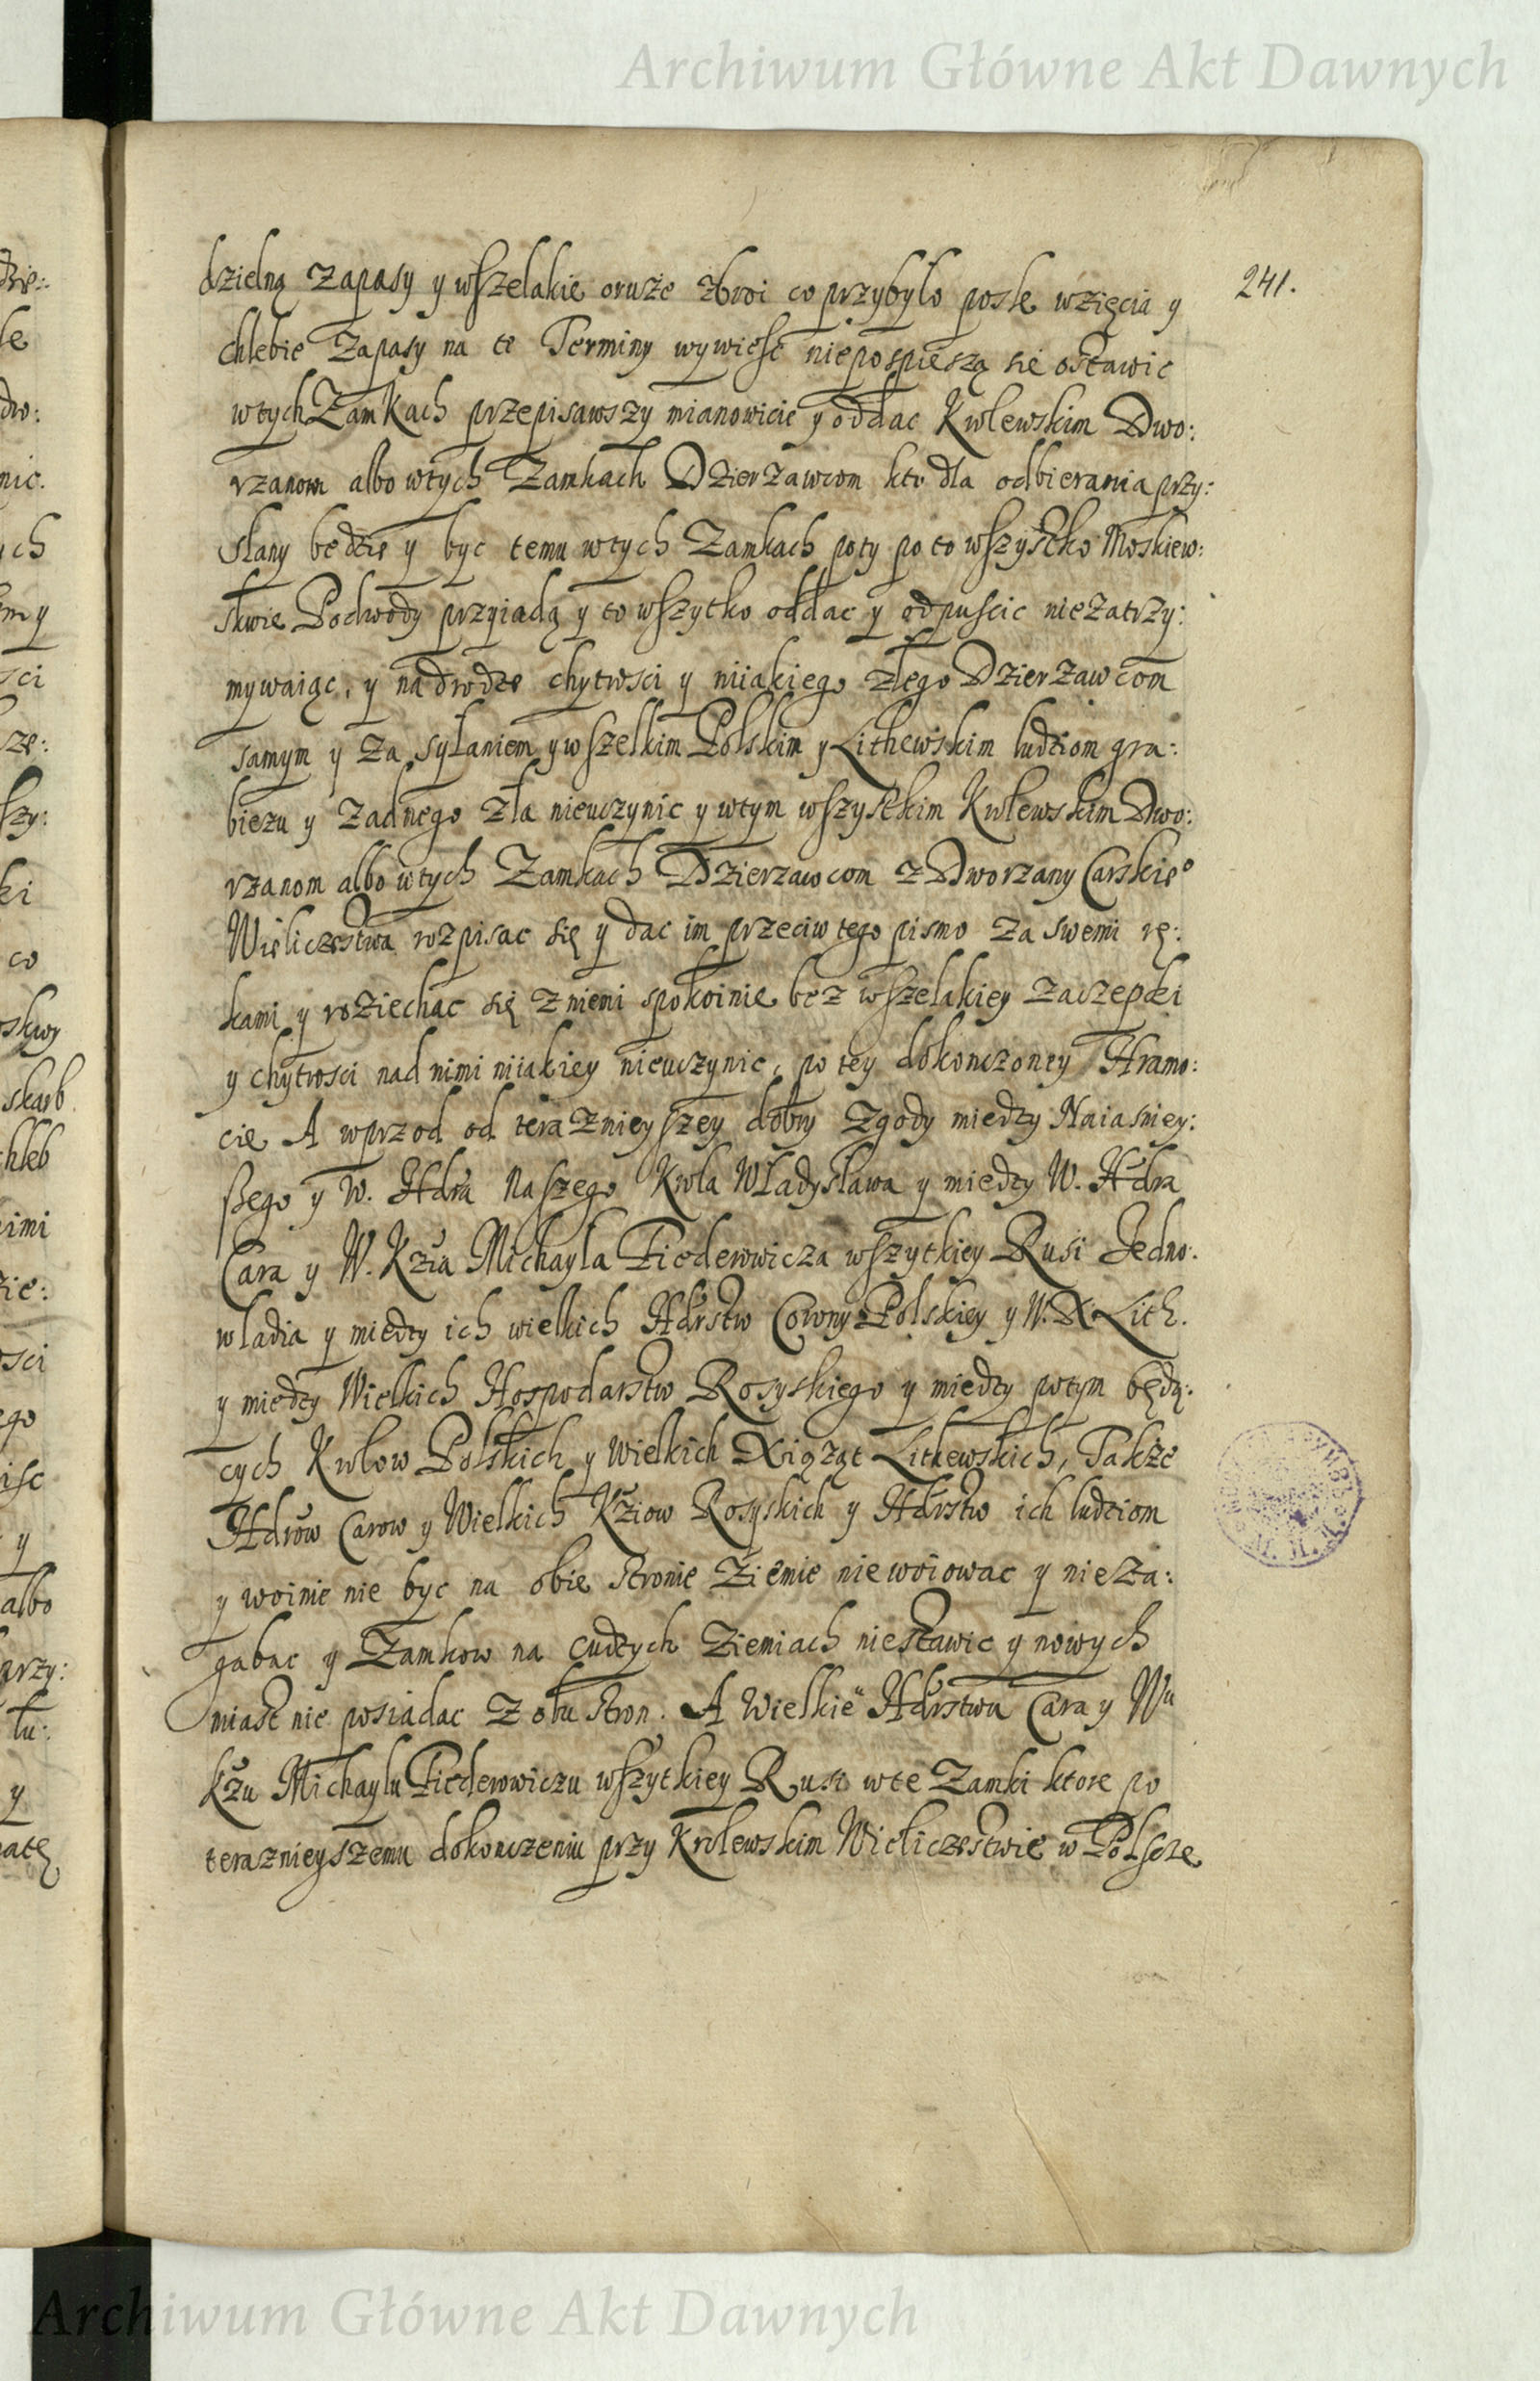 Archiwum Główne Akt Dawnych
241.
dzielną zapasy y wszelakie oruże zbroi co przybyło posle wzięcia y
chlebie zapasy na te Terminy wywiesc niepospieszą sie ostawic
wtych Zamkach przepisawszy mianowicie y oddac Krolewskim Dwo:
rzanom albo wtych Zamkach Dzierżawcom kto dla odbierania przy:
slany będzie y byc temu wtych Zamkach poty po to wszystko Moskiew:
skwie Podwody przyiadą y to wszytko oddac y odpuscic niezatrzy:
mywaiąc, y nadrodze chytrosci y niiakiego złego Dzierzawcom
samym y za sylaniem y wszelkim Polskim y Lithewskim ludziom gra:
bieżu y żadnego zła nieuczynic y wtym wszystkim Krolewskim Dwo:
rzanom albo wtych Zamkach Dzierzawcom z Dworzany Carskieo
Wieliczestwa rozpisac się y dac im przeciw tego pismo za swemi rę:
kami y roziechac się z niemi spokoinie bez wszelakiey zaczepki
y chytrosci nad nimi niiakiey nieuczynic, po tey dokonczoney Hramo:
cie A wprzod od teraznieyszey dobry zgody miedzy Naiasniey:
szego y W. Hdra Naszego Krola Władysława y miedzy W. Hdra
Cara y W. Kzia Michayla Fiederowicza wszytkiey Rusi Jedno:
wladia y miedzy ich wielkich Hdrstw Corony Polskiey y W. X. Lith.
y miedzy Wielkich Hospodarstw Rosyskiego y miedzy potym będą:
cych Krolow Polskich y Wielkich Xiążąt Lithewskich, Także
Hdrow Carow y Wielkich Kziow Rosyskich y Hdrstw ich ludziom
y woinie nie byc na obie stronie Ziemie niewoiowac y nieza:
gabac y Zamkow na cudzych Ziemiach niestawic y nowych
miast nie posiadac z obu stron. A Wielkie Hdrstwu Cara y Wu
Kzu Michaylu Fiederowiczu wszytkiey Rusi wte Zamki ktore po
teraznieyszemu dokonczeniu przy Krolewskim Wieliczestwie w Polscze
Archiwum Główne Akt Dawnych